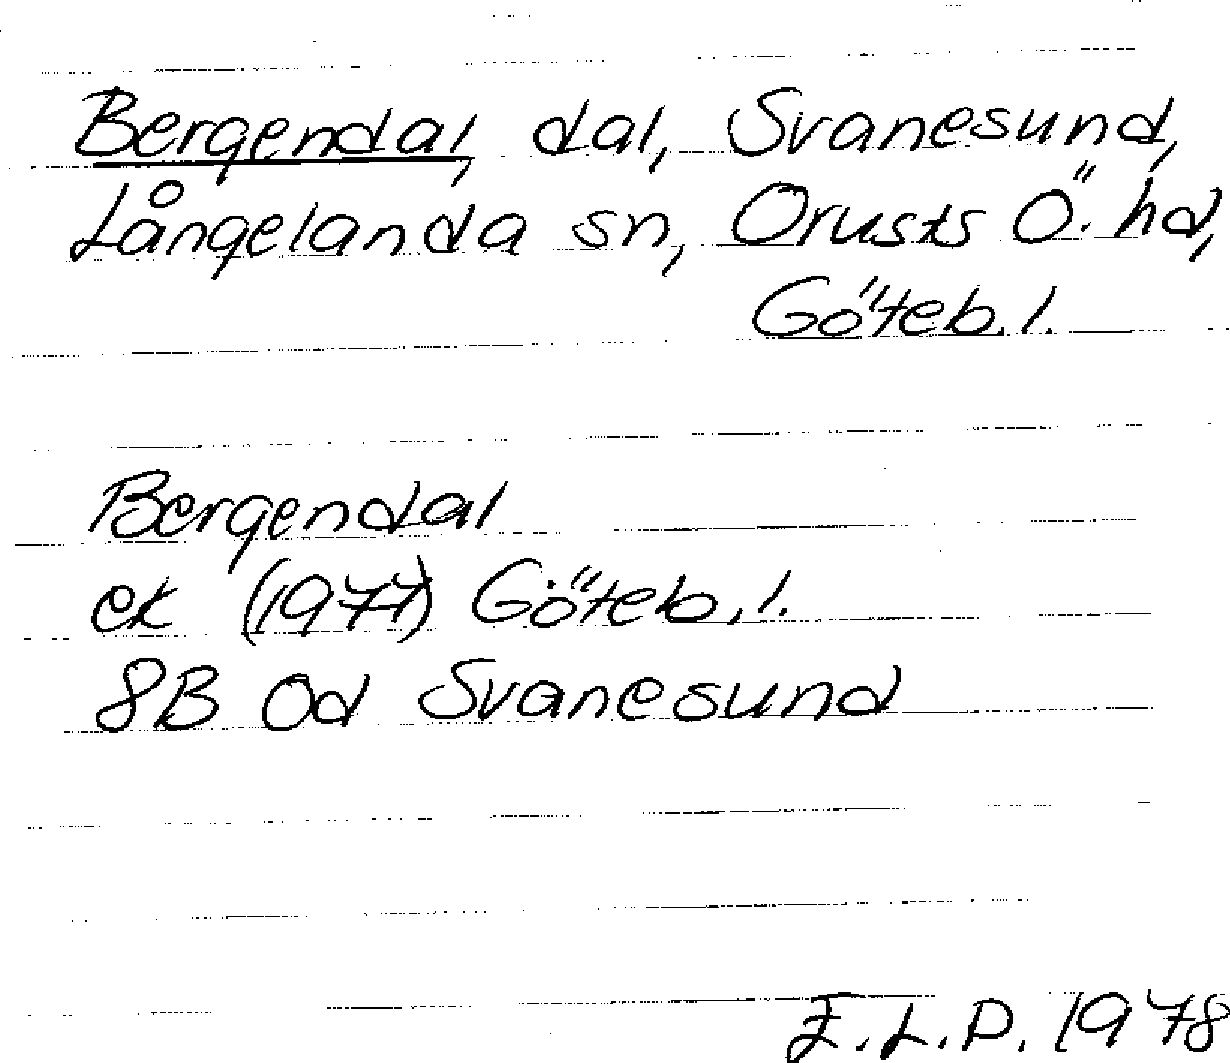 Bergendal, dal, Svanesund,
Långelanda sn, Orusts Ö. hd,
Göteb. l.
Bergendal
ek (1977) Göteb. l.
8B 0d Svanesund
E.L.P. 1978